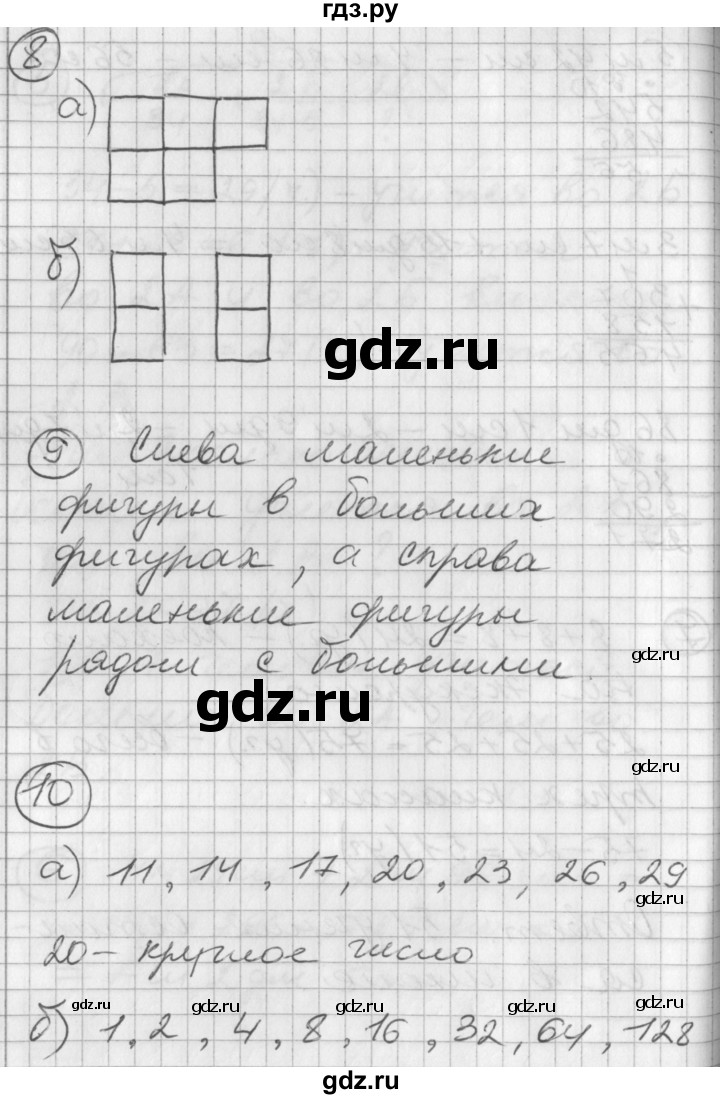 гдз.ру
8
а)
б)
gdz.ru
9 Слева маленькие
фигуры в больших
фигурах, а справа
маленькие фигуры
рядом с большими
gdz.ru
gdz.ru
gdz.ru
10
а) 11, 14, 17, 20, 23, 26, 29
gdz.ru
20 - круглое число
gdz.ru gdz.ru gdz.ru gdz.ru gdz.ru
б) 1, 2, 4, 8, 16, 32, 64, 128
gdz.ru